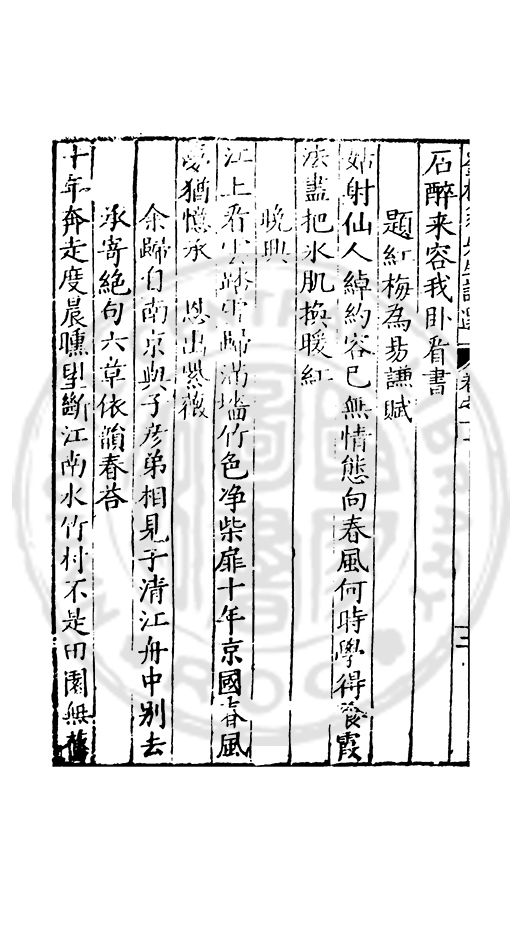 石醉来容我卧看書
題紅梅為易謙賦
姑射仙人綽約容已無情態向春風何時學得餐霞
法盡把氷肌換暖紅
晚興
江上看雲踏雪歸滿墻竹色净柴扉十年京國春風
夢猶憶承 恩出紫薇
余歸自南京與子彦弟相見于清江舟中别去
承寄絶句六章依韻春荅
十年奔走度晨曛望斷江南水竹村不是田園無舊